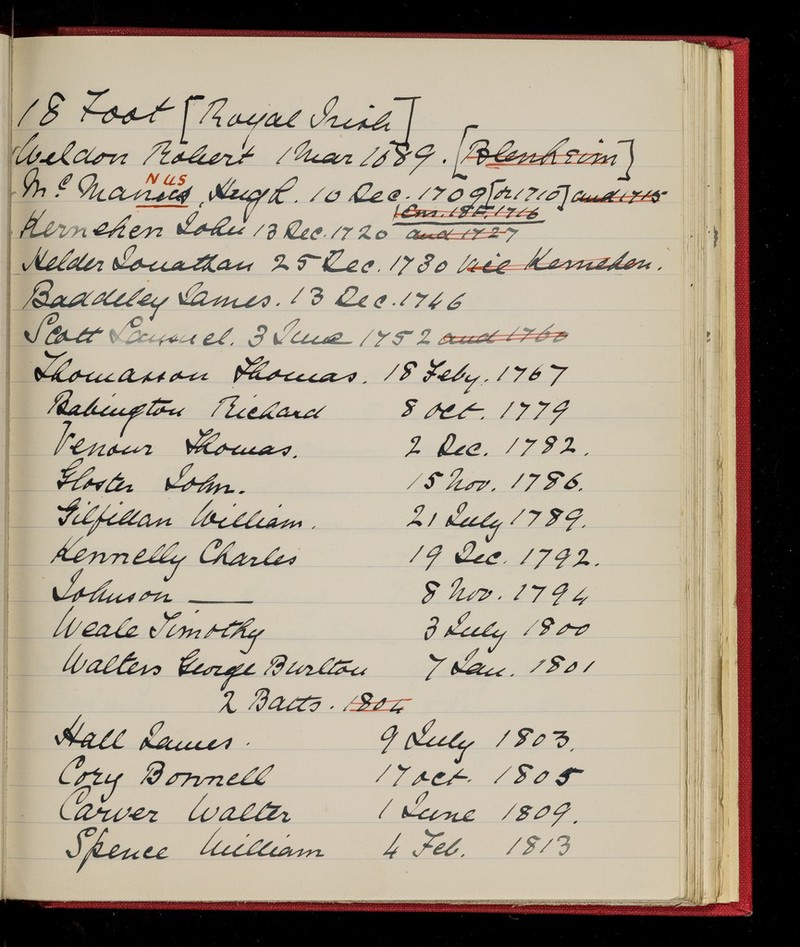 18 Foot [Royal Irish]
Weldon Robert 1 Mar 1689. [Blenheim]
NUS
Mc Manus, Hugh. 10 Dec. 1709 [or 1710] and 1715
Ens. 18F. 1716
Kernehen John 13 Dec. 1720 and 1727
Helder Jonathan 25 Dec. 1730 vice Kernehen.
Baddeley James. 13 Dec. 1746
Scott Samuel. 3 June 1752 and 1760
Thomasson Thomas. 18 Feby. 1767
Babington Richard 8 Oct. 1779
Venour Thomas. 2 Dec. 1782.
Gloster John. 15 Nov. 1786.
Gilfillan William. 21 July 1789.
Kennelly Charles 19 Dec. 1792.
Johnson — 8 Nov. 1794
Weale Timothy 3 July 1800
Walters George Burlton 7 Jan. 1801
2 Batts. 1804
Hall James. 9 July 1803.
Cory Bonnell 17 Oct. 1805
Carver Walter 1 June 1809.
Spence William 4 Feb. 1813